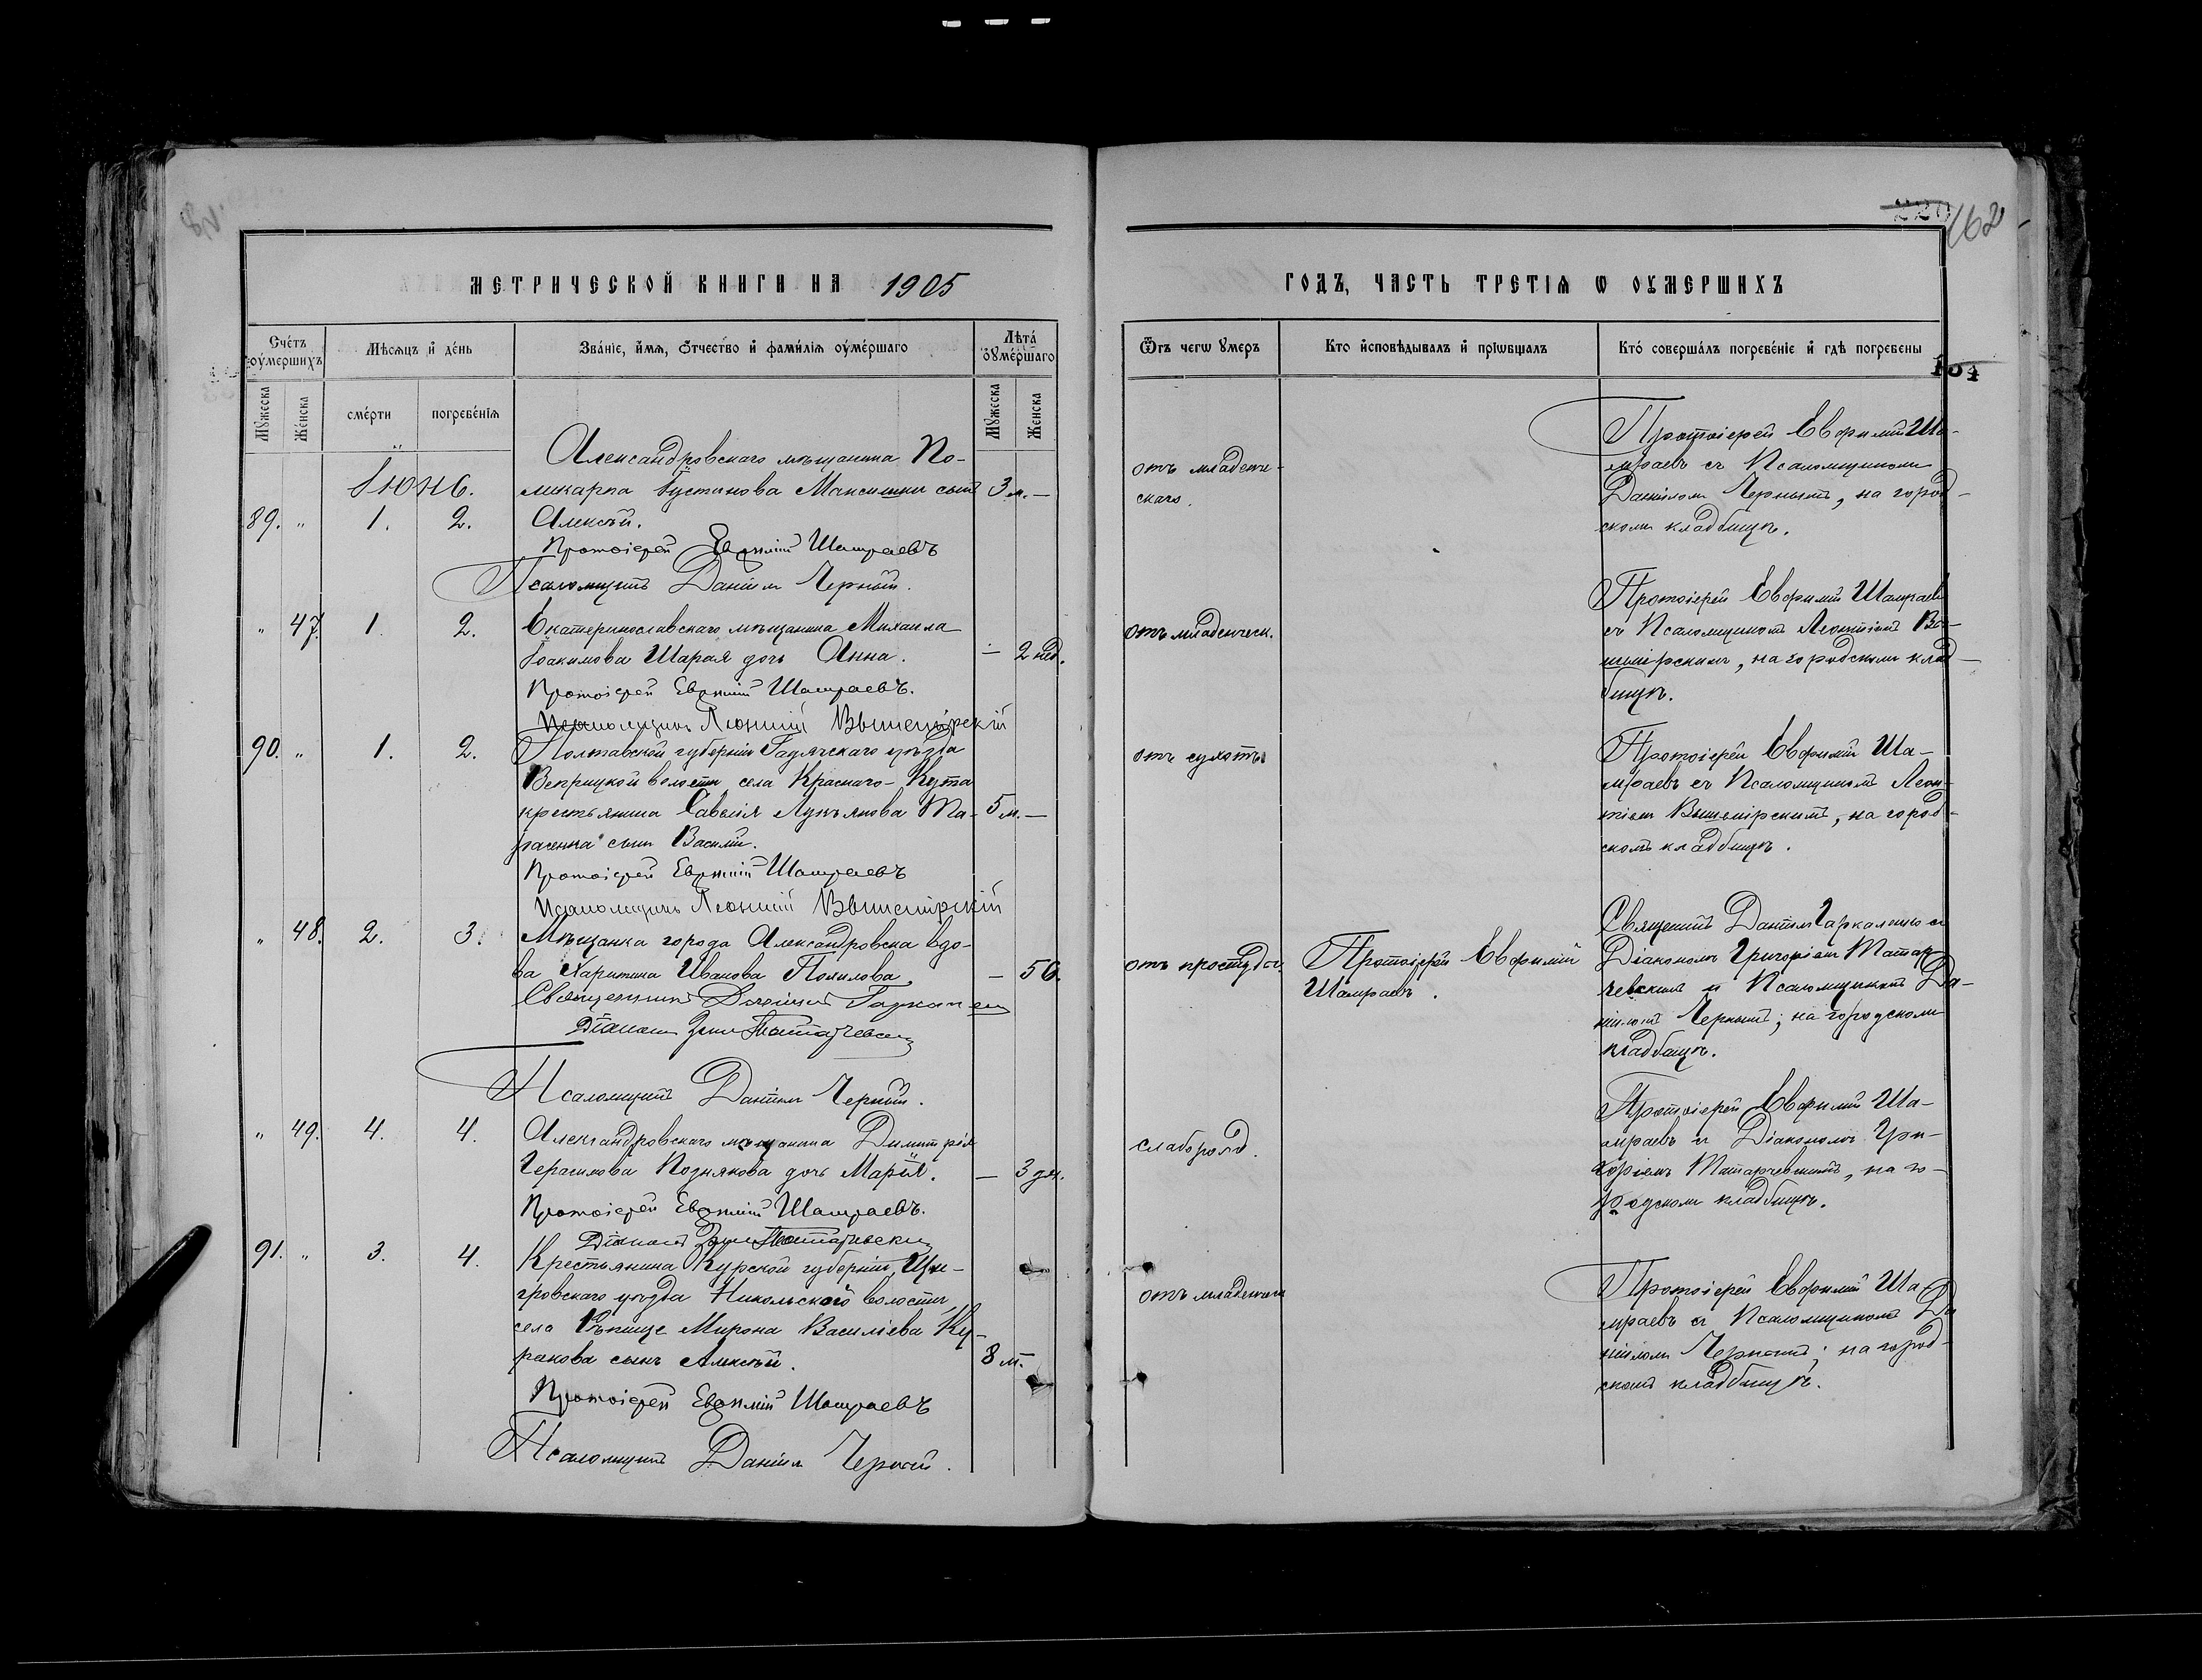 162
МЕТРИЧЕСКОЙ КНИГИ НА 1905
ГОДЪ, ЧАСТЬ ТРЕТІѦ Ѡ ОУМЕРШИХЪ
104
Счéтъ оумершихъ
Мѣсѧцъ и дéнь
Звáніе, и́мѧ, о́тчество и фами́лїѧ оумéршаго
Лѣта́ оумéршаго
Ѿ чегѡ ᲂумеръ
Кто исповѣдывалъ и прїѡбщалъ
Кто́ совершáлъ погребéніе и гдѣ погребены
Мꙋжеска
Женска
смéрти
погребéнїѧ
Мꙋжеска
Женска
Іюнь.
89. " 1. 2.
Александровскаго мѣщанина По-
ликарпа Іустинова Максишки сынъ
Алексѣй.
3 м. —
Протоіерей Евѳимій Шамраевъ
Псаломщикъ Даніилъ Черный.
отъ младенче-
скаго.
Протоіерей Евфимій Ша-
мраевъ съ Псаломщикомъ
Даніиломъ Чернымъ, на город-
скомъ кладбищѣ.
" 47. 1. 2.
Екатеринославскаго мѣщанина Михаила
Іоакимова Шарая дочь Анна.
— 2 нед.
Протоіерей Евѳимій Шамраевъ.
Псаломщикъ Леонтій Вышемірскій
отъ младенческ.
Протоіерей Евфимій Шамраевъ
съ Псаломщикомъ Леонтіемъ Вы-
шемірскимъ, на городскомъ клад-
бищѣ.
90. " 1. 2.
Полтавской губерніи Гадячскаго уѣзда
Веприцкой волости села Краснаго-Кута
крестьянина Савелія Лукьянова Та-
расенка сынъ Василій.
5 м. —
Протоіерей Евѳимій Шамраевъ
Псаломщикъ Леонтій Вышемірскій
отъ сухоты
Протоіерей Евфимій Ша-
мраевъ съ Псаломщикомъ Леон-
тіемъ Вышемірскимъ, на город-
скомъ кладбищѣ.
" 48. 2. 3.
Мѣщанка города Александровска вдо-
ва Харитина Иванова
— 56.
Священникъ
Діаконъ
Псаломщикъ Даніилъ Черный.
отъ простуды
Протоіерей Евфимій
Шамраевъ.
съ
Діакономъ Григоріемъ Татар-
чевскимъ и Псаломщикомъ Да-
ніиломъ Чернымъ; на городскомъ
кладбищѣ.
" 49. 4. 4.
Александровскаго мѣщанина Димитрія
Герасимова Познякова дочь Марія.
— 3 дн.
Протоіерей Евѳимій Шамраевъ.
Діаконъ
слаборожд.
Протоіерей Евфимій Ша-
мраевъ съ Діакономъ Гри-
горіемъ Татарчевскимъ, на го-
родскомъ кладбищѣ.
91. " 3. 4.
Крестьянина Курской губерніи, Щи-
гровскаго уѣзда Никольской волости,
села Мирона Василіева Ку-
ракова сынъ Алексѣй.
8 м. —
Протоіерей Евѳимій Шамраевъ
Псаломщикъ Даніилъ Черный.
отъ младенческ
Протоіерей Евфимій Ша-
мраевъ съ Псаломщикомъ Да-
ніиломъ Чернымъ; на город-
скомъ кладбищѣ.